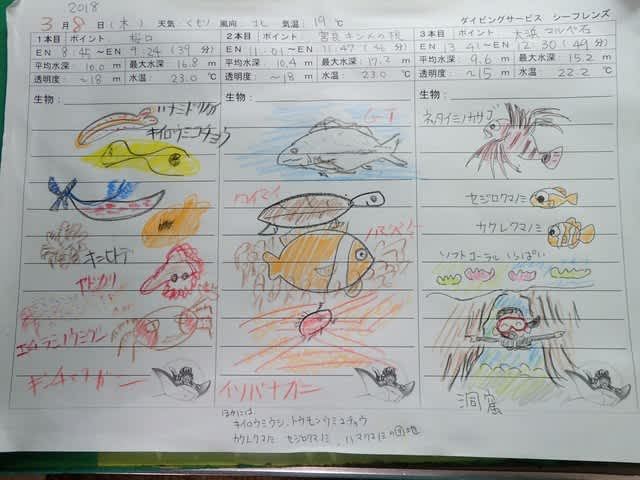 2018
3月8日(木) 天気 くもり 風向 コレ 気温:19℃ ダイビングサービス シーフレンズ
1本目 ポイント
EN 8:45~EN 9:24 (39分)
平均水深: 10.0m 最大水深: 16.8m
透明度: ~18m 水温: 23.0℃
生物:
キイロウミコチョウ
ヤドカリ
キンチャクガニ
2本目 ポイント
EN 11:01~EN 11:47 (46分)
平均水深: 10.4m 最大水深: 17.2m
透明度: ~18m 水温: 23.0℃
生物:
GT
イソバナガニ
3本目 ポイント 大浜
EN 13:41~EN 12:30 (49分)
平均水深: 9.6m 最大水深: 15.2m
透明度: ~15m 水温: 22.2℃
生物:
ネッタイミノカサゴ
セジロクマノミ
カクレクマノミ
ソフトコーラル いっぱい
洞窟
ほかには
キイロウミウシ、トウモンウミコチョウ
カクレクマノミ セジロクマノミ、ハマクマノミの団地